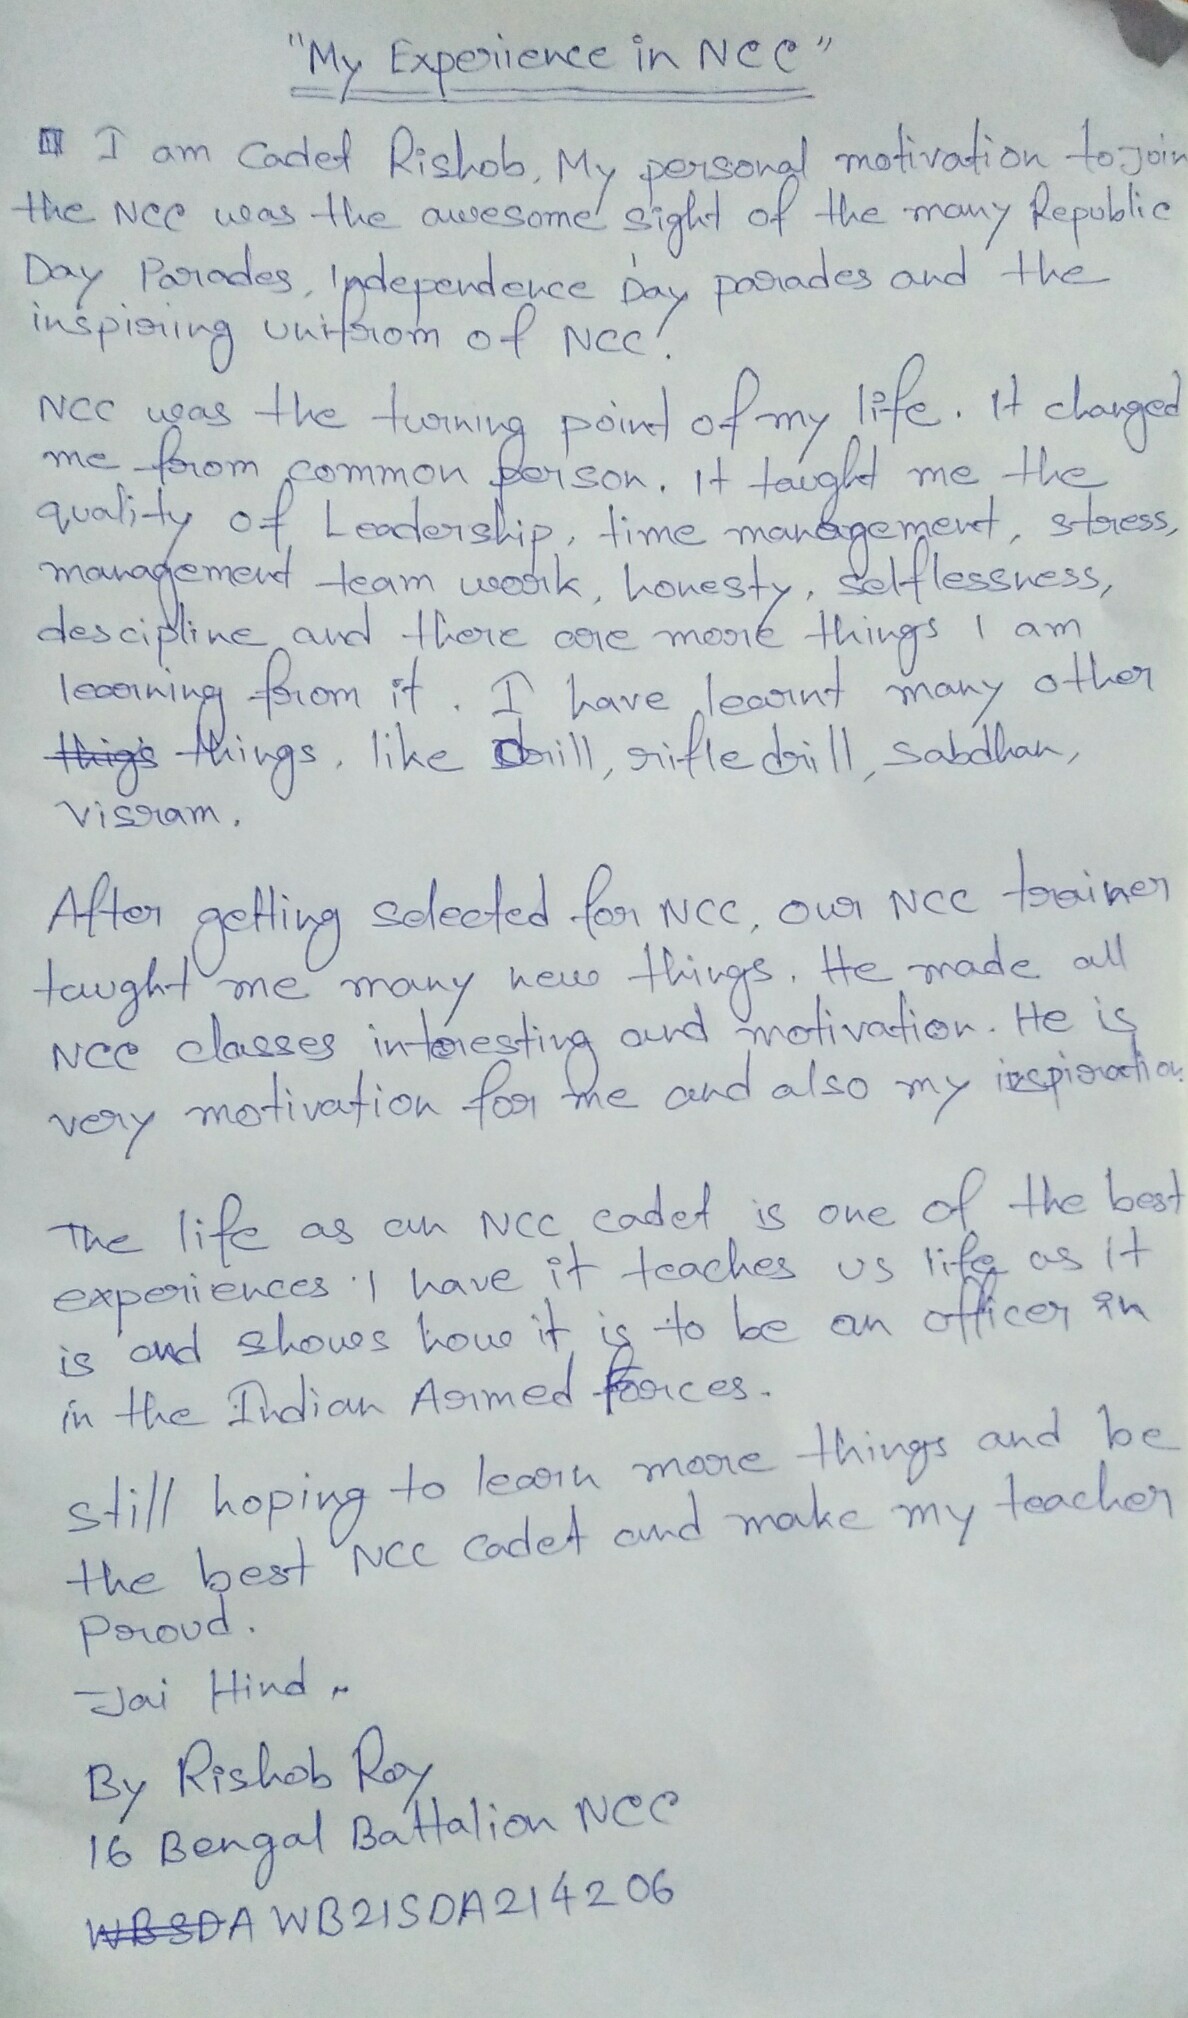 "My Experience in NCC"
I am Cadet Rishob, My personal motivation to join
the NCC was the awesome sight of the many Republic
Day Parades, Independence Day parades and the
inspiring unifrom of NCC!
NCC was the turning point of my life. It changed
me from common person. It taught me the
quality of Leadership, time management, stress,
management team work, honesty, selflessness,
descipline and there are more things I am
learning from it. I have learnt many other
thigs things, like Drill, rifle drill, sabdhan,
Visram.
After getting selected for NCC, our NCC trainer
taught me many new things. He made all
NCC classes interesting and motivation. He is
very motivation for me and also my inspiration
The life as an NCC cadet is one of the best
experiences I have it teaches us life as it
is and shows how it is to be an officer in
in the Indian Armed Forces.
still hoping to learn more things and be
the best NCC Cadet and make my teacher
Proud.
Jai Hind
By Rishob Roy
16 Bengal Battalion NCC
WBSDA WB21SDA214206